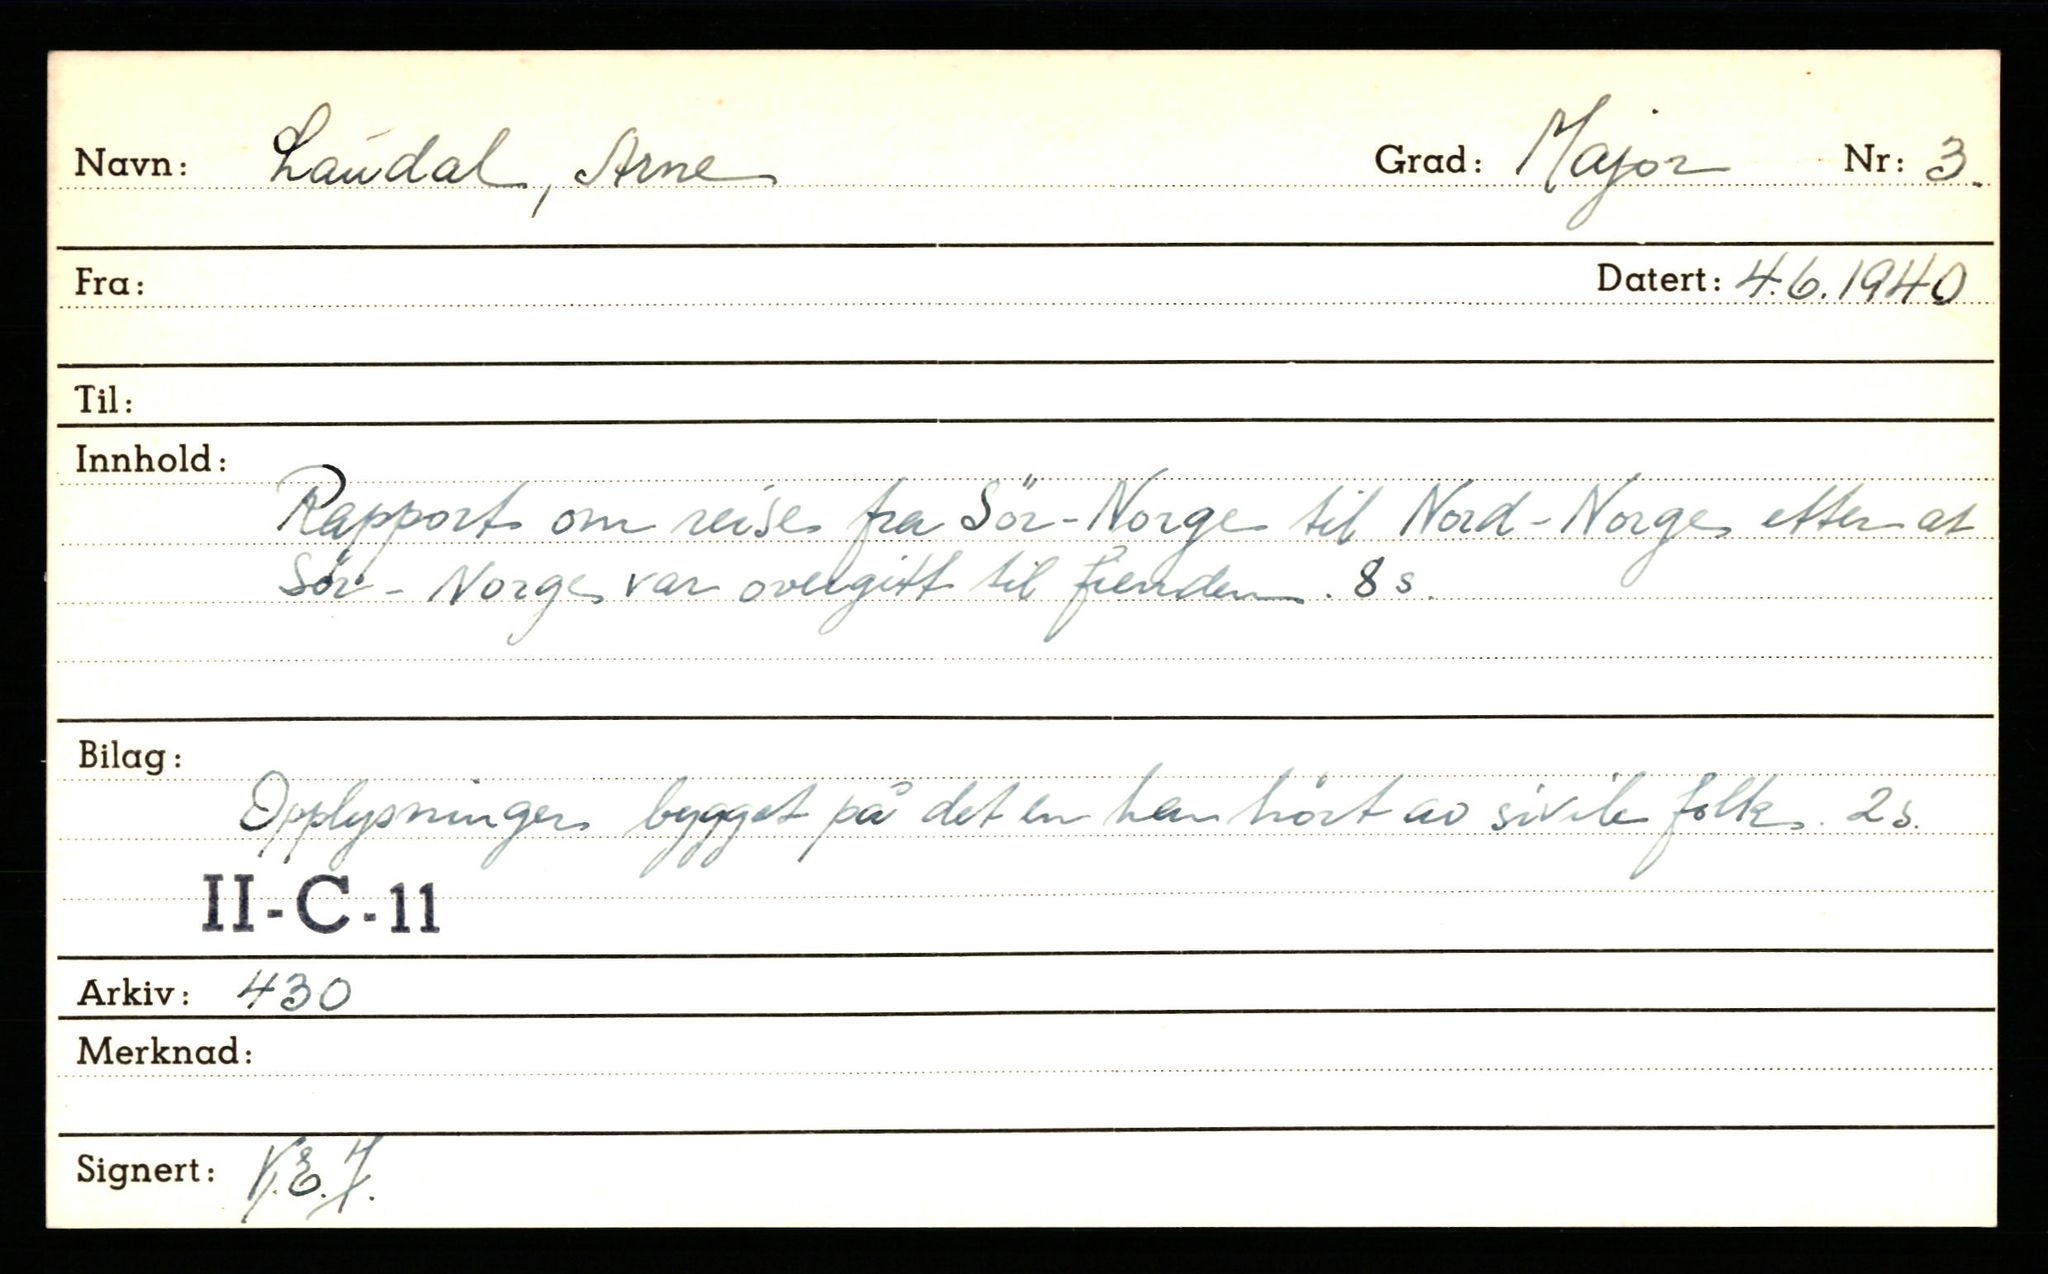 Navn: Laudal, Arne Grad: Major Nr: 3.
Fra: Datert: 4.6.1940
Til:
Innhold:
Rapport om reise fra Sör-Norge til Nord-Norge etter at
Sör-Norge var overgitt til fienden. 8 s.
Bilag:
Opplysninger bygget på det en har hört av sivile folk. 2 s.
II-C-11
Arkiv: 430
Merknad:
Signert: K.E.J.